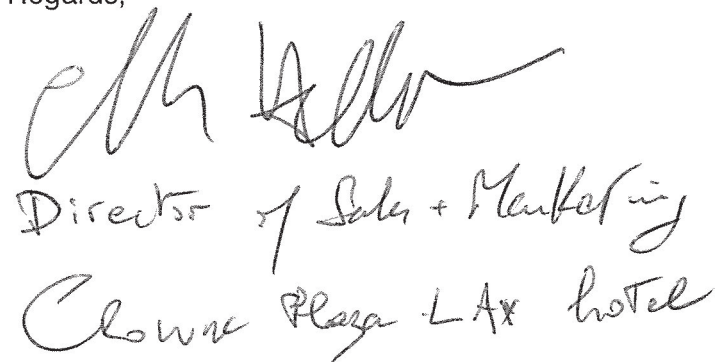 Regards,
Director of Sales + Marketing
Crowne Plaza LAX hotel